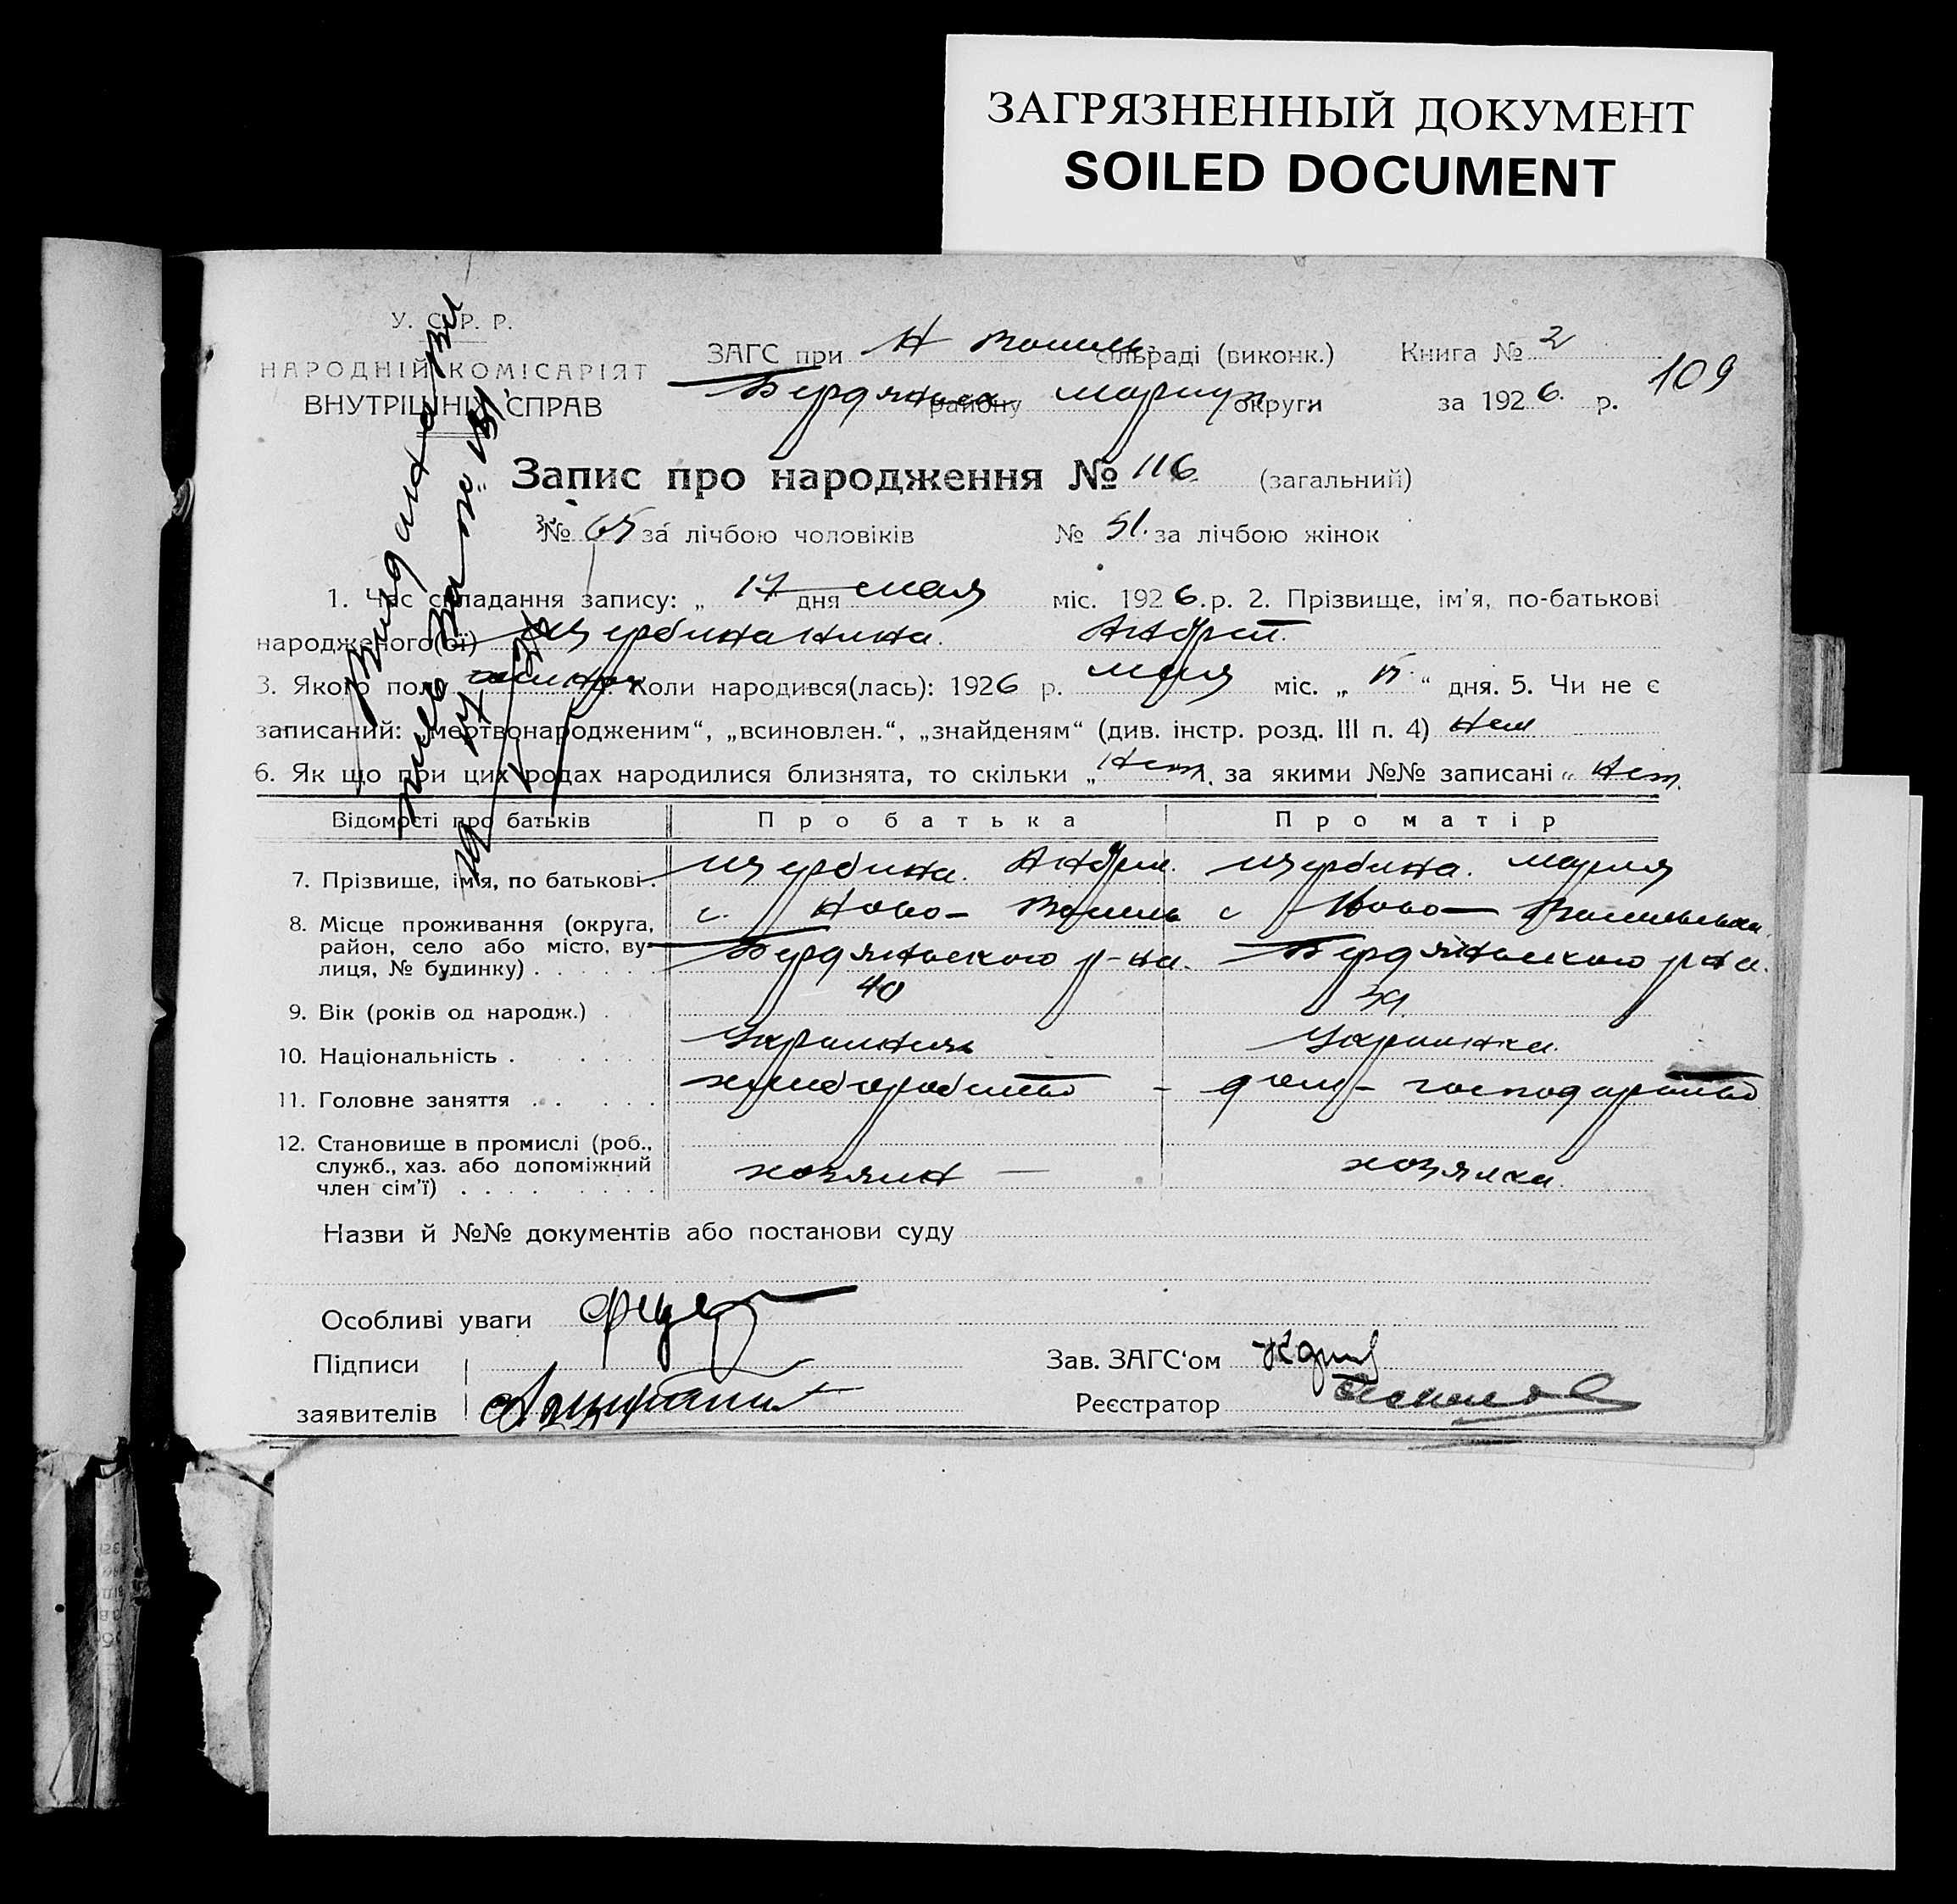 ЗАГРЯЗНЕННЫЙ ДОКУМЕНТ
SOILED DOCUMENT
У. С. Р. Р.
НАРОДНІЙ КОМІСАРІЯТ
ВНУТРІШНІХ СПРАВ
ЗАГС при Н Василь. сільраді (виконк.) Книга № 2
Бердянськ району Мариуп. округи за 1926. р. 109
Запис про народження № 116. (загальний)
№ 65 за лічбою чоловіків № 51. за лічбою жінок
1. Час складання запису: „ 17 дня мая міс. 1926.р. 2. Прізвище, ім'я, по-батькові
народженого(ої) Щербина Нина. Андрееі.
3. Якого полу 4. Коли народився(лась): 1926 р. мая міс. „ “ дня. 5. Чи не є
записаний: „мертвонародженим“, „всиновлен.“, „знайденям“ (див. інстр. розд. III п. 4) нет
6. Як що при цих родах народилися близнята, то скільки „ Нет. за якими №№ записані „ нет.
Відомості про батьків Про батька Про матір
7. Прізвище, ім'я, по батькові. Щербина. Андрей. Щербина. Мария
8. Місце проживання (округа, с. Ново- Василь с Ново-Васильевка
район, село або місто, ву- Бердянського р-на. Бердянського рна.
лиця, № будинку) . . . . . .
9. Вік (років од народж.) . 40 39.
10. Національність . . . . . Украинець Украинка.
11. Головне заняття . . . . . хлиборобство - дом- господарство
12. Становище в промислі (роб.,
служб., хаз. або допоміжний хозяин — хозяйка.
член сім'ї) . . . . . . . .
Назви й №№ документів або постанови суду
Особливі уваги
Підписи Зав. ЗАГС'ом
заявителів Реєстратор